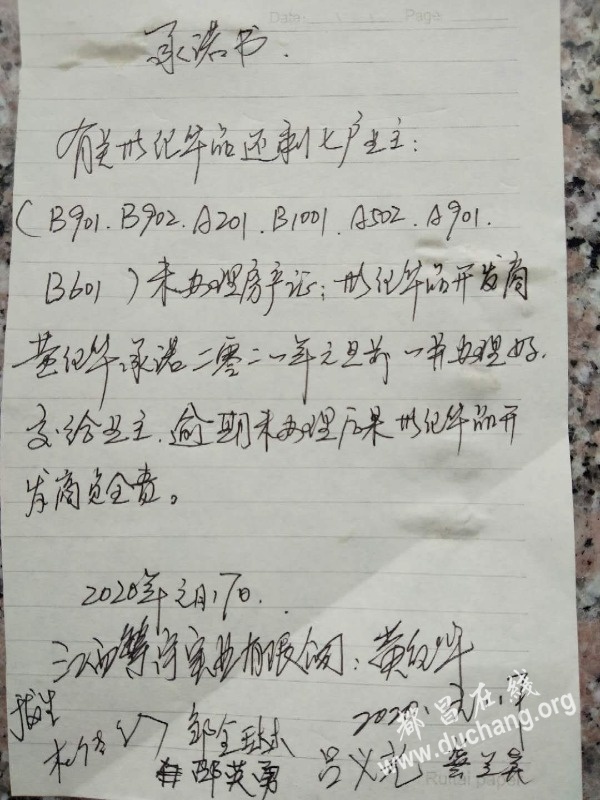 Date: Page:
承诺书.
有关世纪华品还剩七户业主:
(B901.B902.A201.B1001.A502.A901.
B601)未办理房产证;世纪华品开发商
黄纪华承诺二零二一年元旦前一并办理好.
交给业主.逾期未办理后果世纪华品开
发商负全责。
2020年元月17日.
江西 实业有限公司:黄纪华
邹金
2020.元.17
邵英勇
吕义龙
都昌在线
www.duchang.org
Ruitai paper